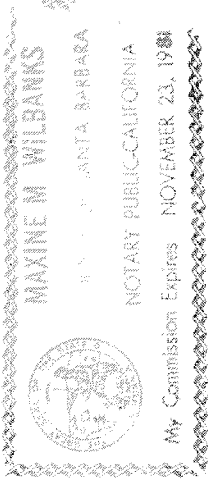 MAXINE M WILBANKS
SANTA BARBARA
NOTARY PUBLIC-CALIFORNIA
My Commission Expires NOVEMBER 23, 1981